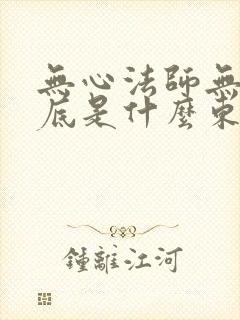 無心法師無
底是什麼東
鍾離江河